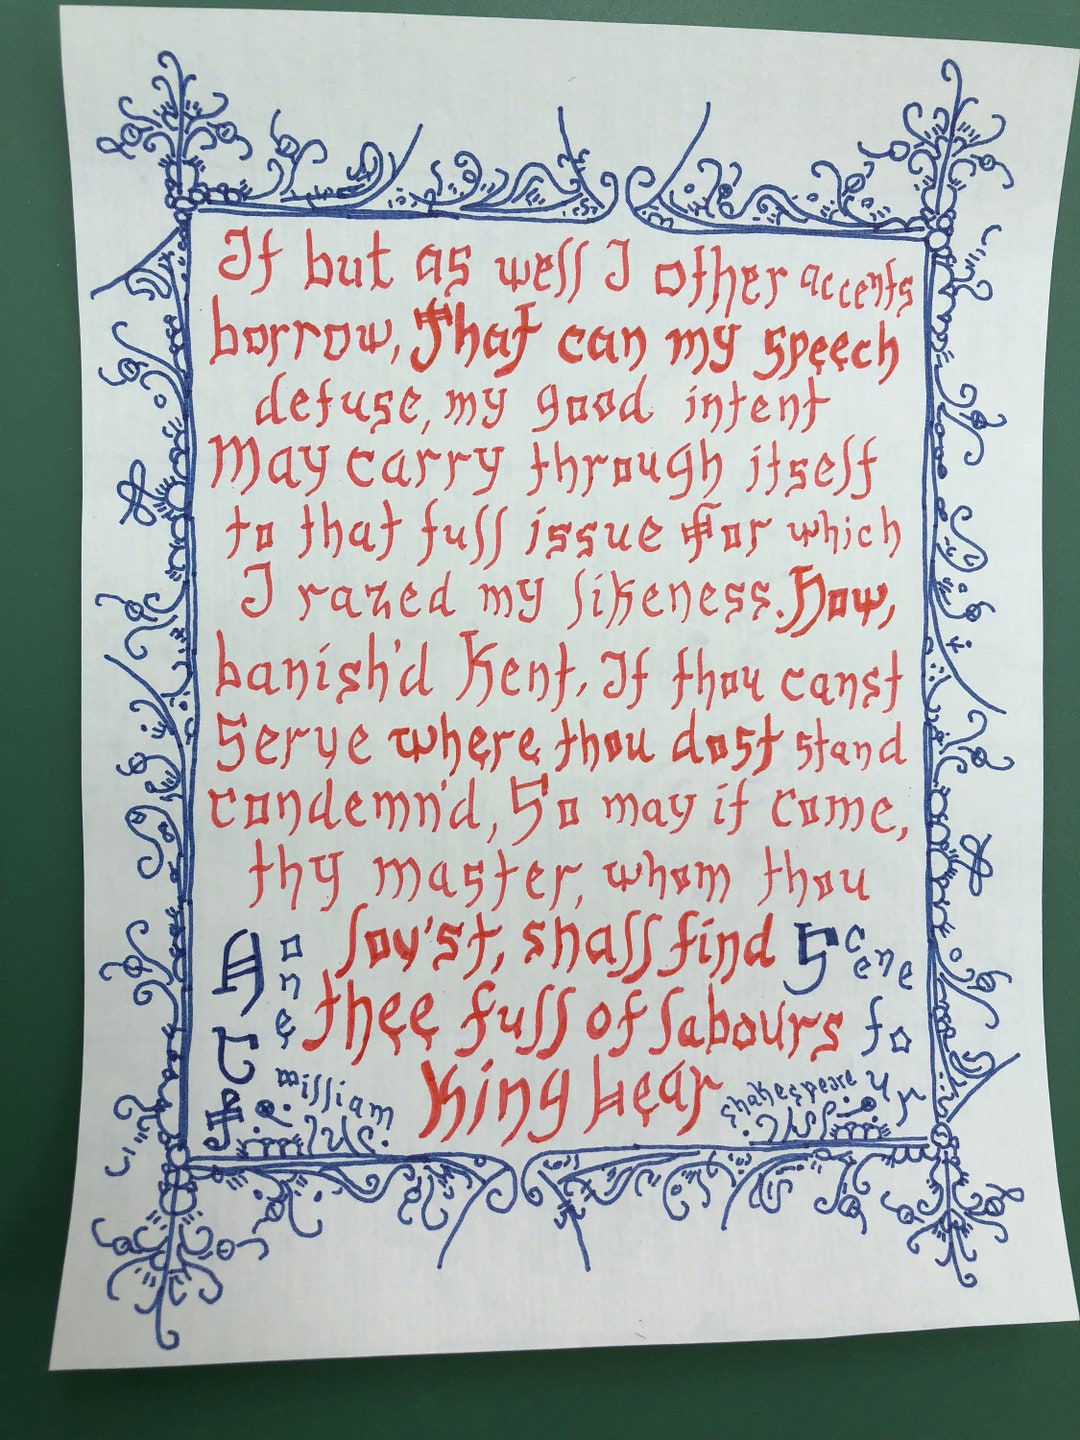 If but as well I other accents
borrow, That can my speech
defuse, my good intent
May carry through itself
to that full issue For which
I razed my likeness. Now,
banish'd Kent, If thou canst
Serve where thou dost stand
condemn'd, So may it come,
thy master, whom thou
lov'st, shall find
thee full of labours
King Lear
Act one
Scene four
William Shakespeare